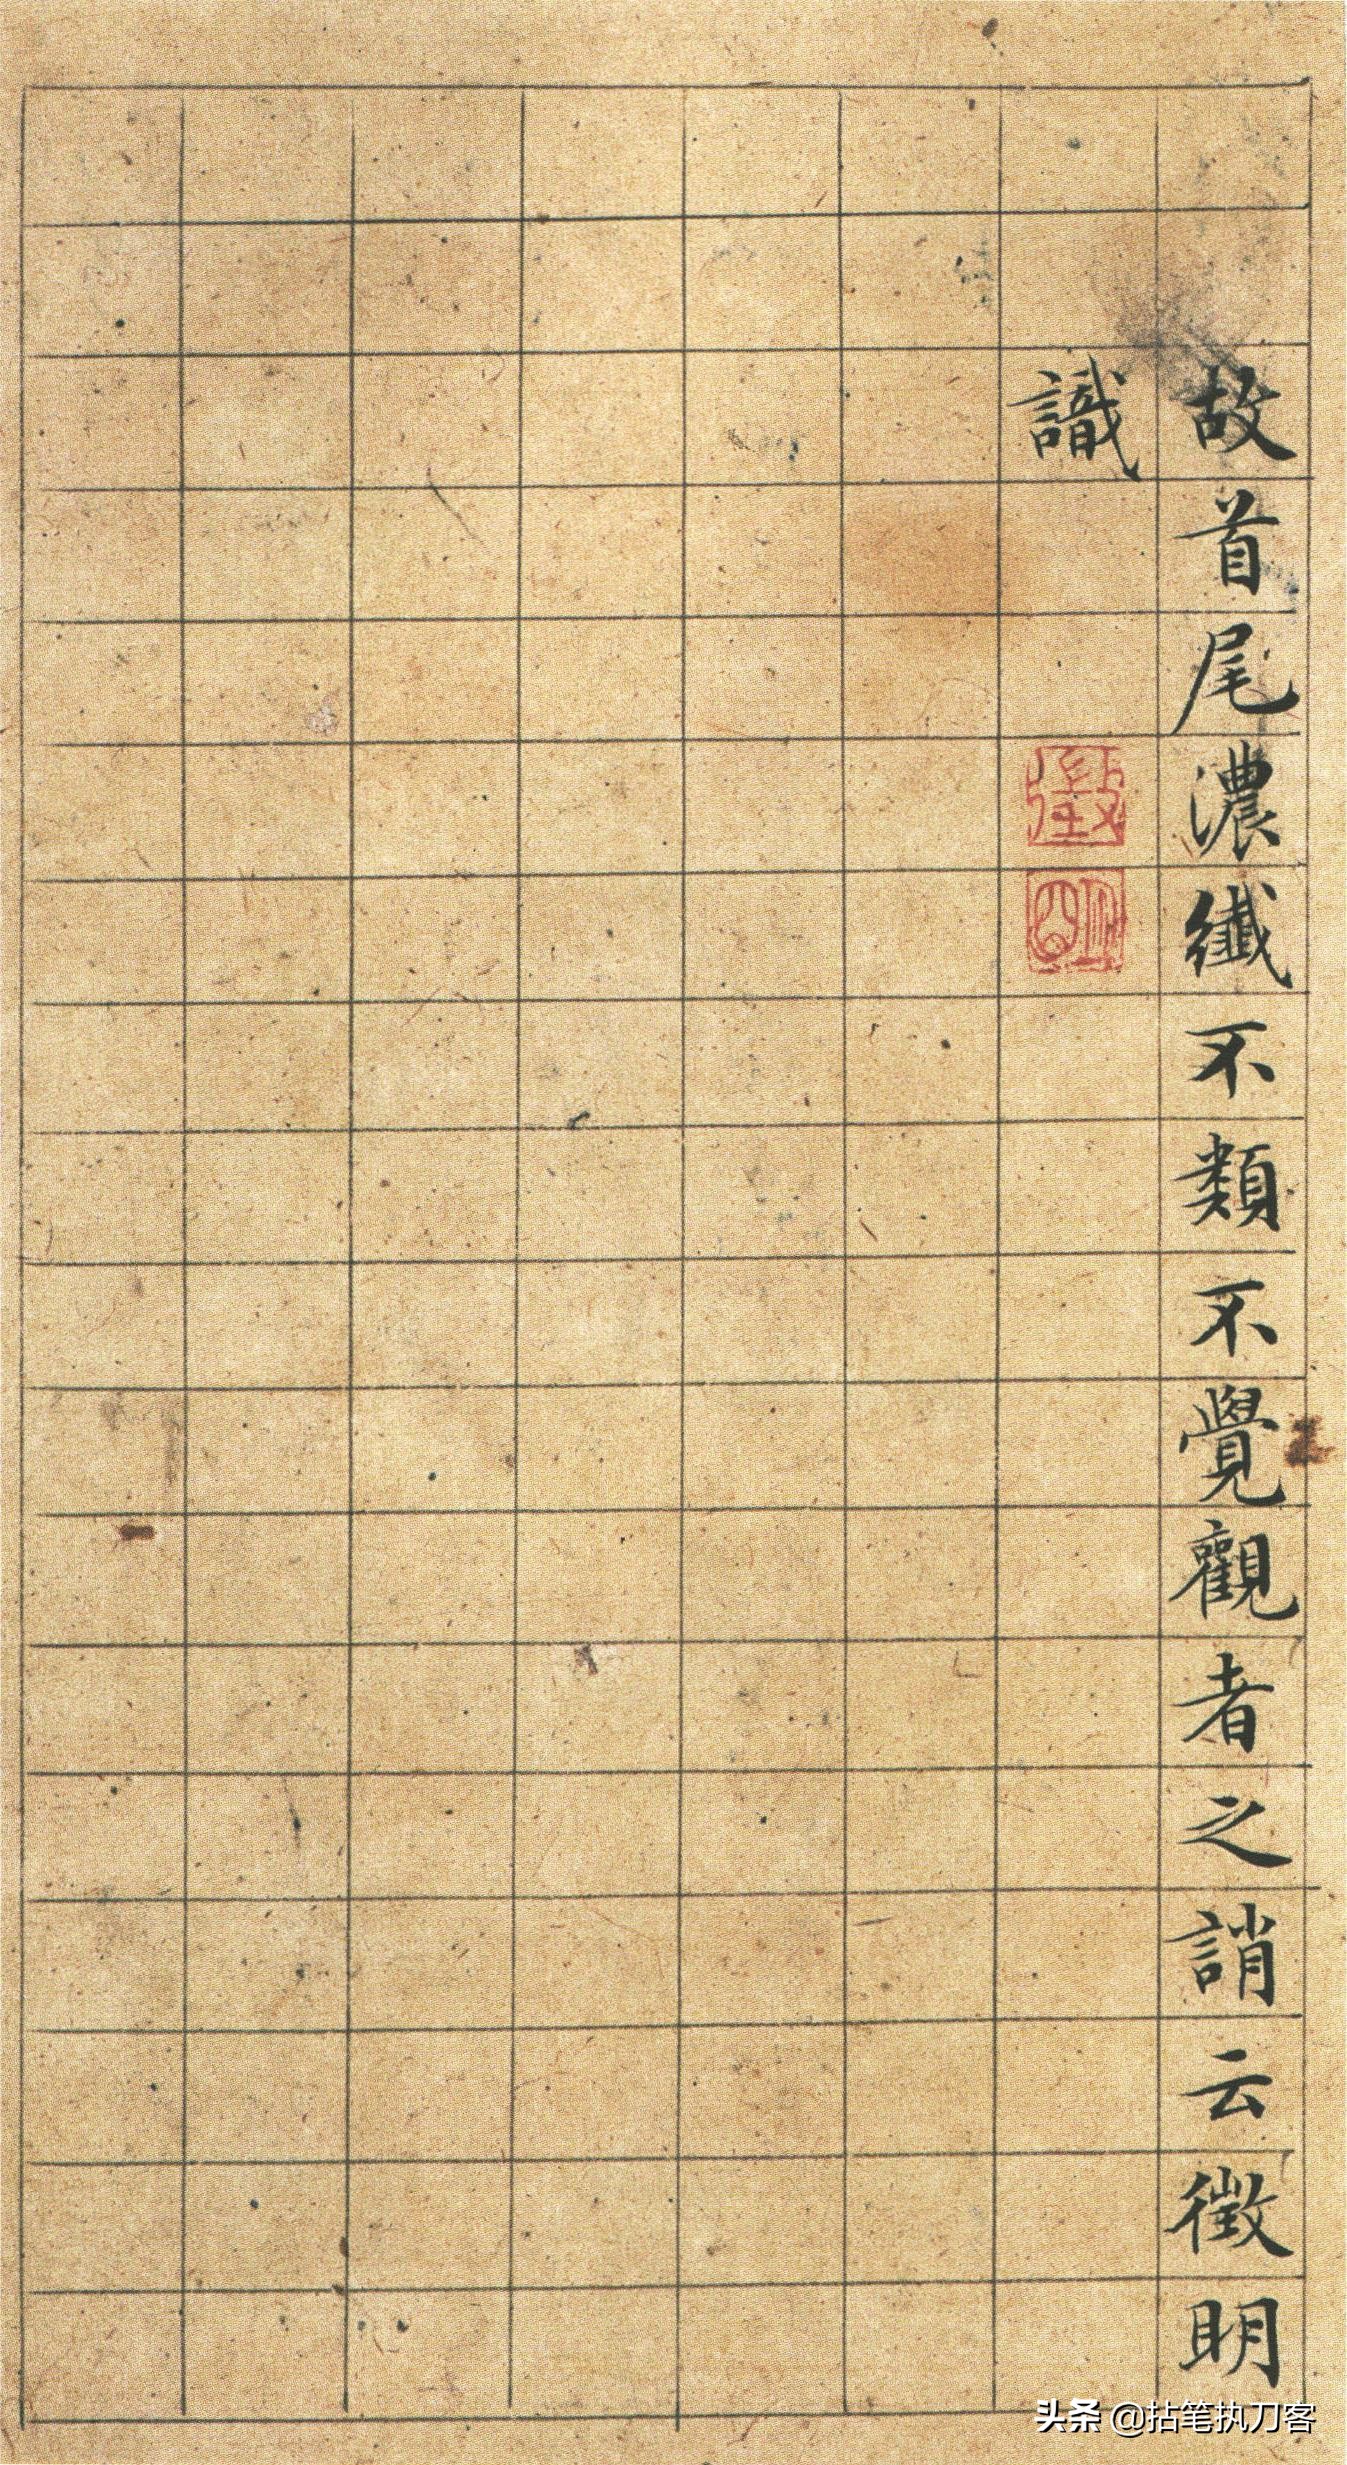 故首尾濃纖不類不覺觀者之誚云徵明
識
徵
明
头条 @拈笔执刀客